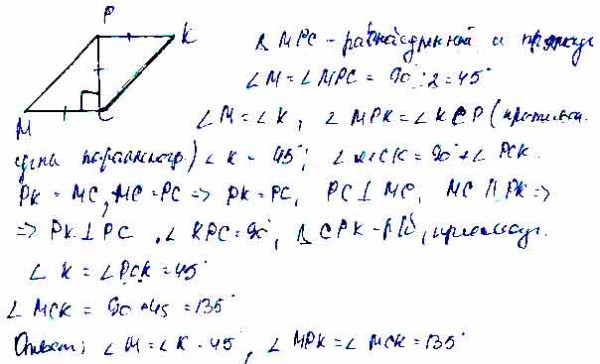 P
K
M
C
Δ MPC - равнобедренный и прямоуг
∠M = ∠MPC = 90 : 2 = 45°
∠M = ∠K, ∠MPK = ∠KCP (противоп.
углы параллелогр.) ∠K - 45°; ∠MCK = 90° + ∠PCK.
PK = MC, MC = PC => PK = PC, PC ⊥ MC, MC || PK =>
=> PK ⊥ PC, ∠KPC = 90°, Δ CPK - р/б, прямоуг.
∠K = ∠PCK = 45°
∠MCK = 90 + 45 = 135°
Ответ; ∠M = ∠K - 45°, ∠MPK = ∠MCK = 135°